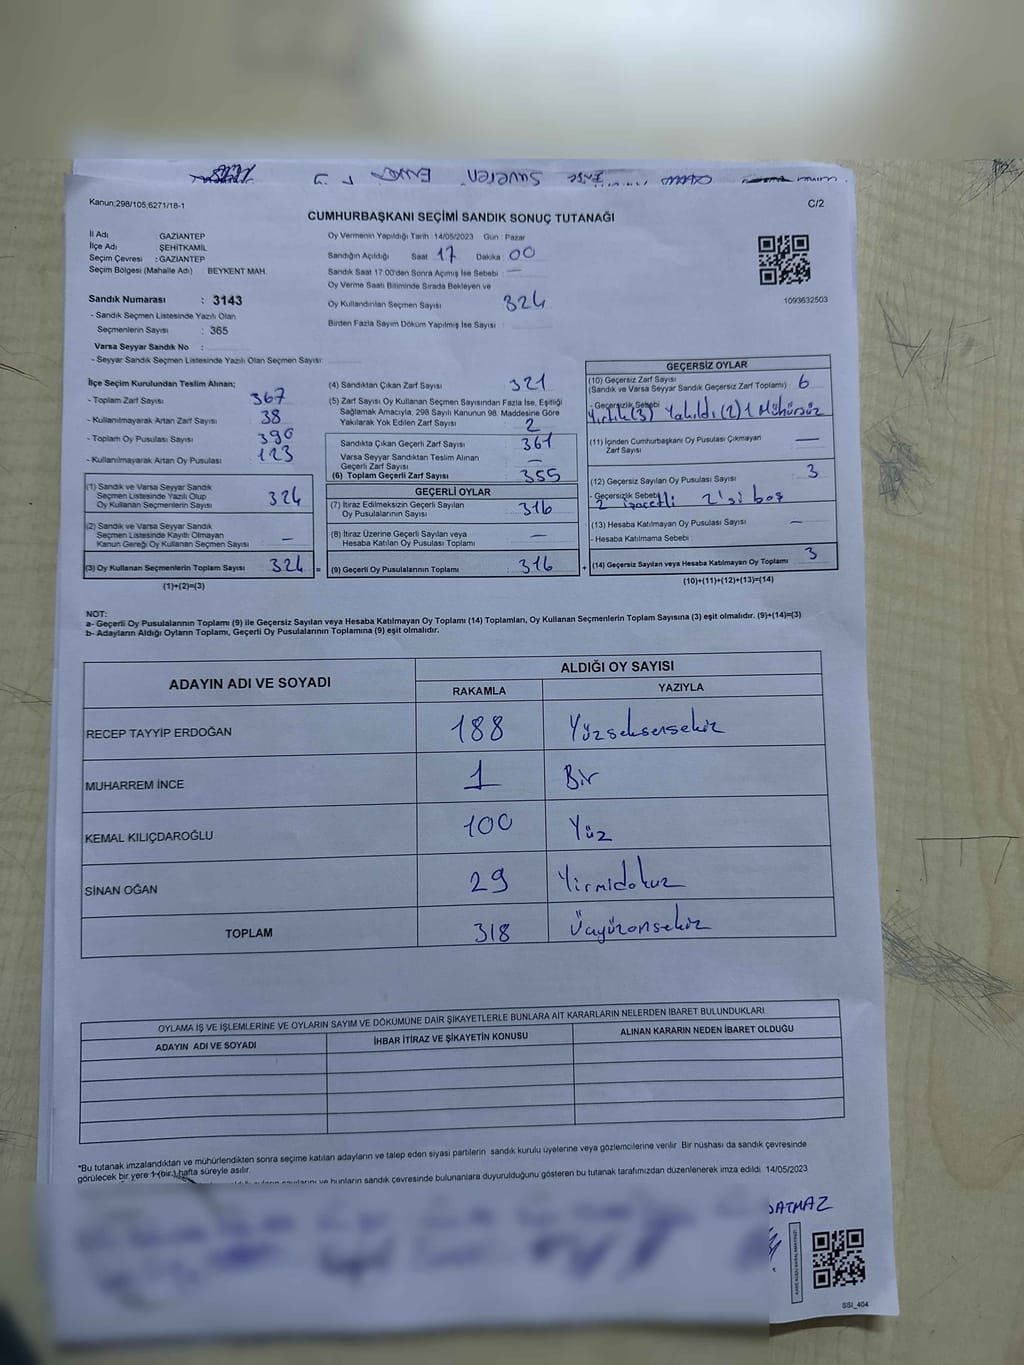 Kanun:298/105,6271/18-1
C/2
CUMHURBAŞKANI SEÇİMİ SANDIK SONUÇ TUTANAĞI
İl Adı : GAZİANTEP
İlçe Adı : ŞEHİTKAMİL
Seçim Çevresi : GAZİANTEP
Seçim Bölgesi (Mahalle Adı) BEYKENT MAH.
Sandık Numarası : 3143
- Sandık Seçmen Listesinde Yazılı Olan
Seçmenlerin Sayısı : 365
Varsa Seyyar Sandık No :
- Seyyar Sandık Seçmen Listesinde Yazılı Olan Seçmen Sayısı:
Oy Vermenin Yapıldığı Tarih :14/05/2023 Gün : Pazar
Sandığın Açıldığı Saat 17 Dakika : 00
Sandık Saat 17.00'den Sonra Açılmış İse Sebebi : —
Oy Verme Saati Bitiminde Sırada Bekleyen ve
Oy Kullandırılan Seçmen Sayısı : 324
Birden Fazla Sayım Döküm Yapılmış İse Sayısı :
1093632503
İlçe Seçim Kurulundan Teslim Alınan;
- Toplam Zarf Sayısı : 367
- Kullanılmayarak Artan Zarf Sayısı : 38
- Toplam Oy Pusulası Sayısı : 390
- Kullanılmayarak Artan Oy Pusulası : 123
(1) Sandık ve Varsa Seyyar Sandık
Seçmen Listesinde Yazılı Olup
Oy Kullanan Seçmenlerin Sayısı : 324
(2) Sandık ve Varsa Seyyar Sandık
Seçmen Listesinde Kayıtlı Olmayan
Kanun Gereği Oy Kullanan Seçmen Sayısı : —
(3) Oy Kullanan Seçmenlerin Toplam Sayısı : 324
(1)+(2)=(3)
(4) Sandıktan Çıkan Zarf Sayısı : 321
(5) Zarf Sayısı Oy Kullanan Seçmen Sayısından Fazla İse, Eşitliği
Sağlamak Amacıyla, 298 Sayılı Kanunun 98. Maddesine Göre
Yakılarak Yok Edilen Zarf Sayısı : 2
Sandıkta Çıkan Geçerli Zarf Sayısı : 361
Varsa Seyyar Sandıktan Teslim Alınan
Geçerli Zarf Sayısı : —
(6) Toplam Geçerli Zarf Sayısı : 355
GEÇERLİ OYLAR
(7) İtiraz Edilmeksizin Geçerli Sayılan
Oy Pusulalarının Sayısı : 316
(8) İtiraz Üzerine Geçerli Sayılan veya
Hesaba Katılan Oy Pusulası Toplamı : —
= (9) Geçerli Oy Pusulalarının Toplamı : 316
GEÇERSİZ OYLAR
(10) Geçersiz Zarf Sayısı
(Sandık ve Varsa Seyyar Sandık Geçersiz Zarf Toplamı) : 6
- Geçersizlik Sebebi
Yırtık(3) Yakıldı(2) 1 Mühürsüz
(11) İçinden Cumhurbaşkanı Oy Pusulası Çıkmayan
Zarf Sayısı : —
(12) Geçersiz Sayılan Oy Pusulası Sayısı : 3
- Geçersizlik Sebebi
2 işaretli 2'si boş
(13) Hesaba Katılmayan Oy Pusulası Sayısı : —
- Hesaba Katılmama Sebebi
+ (14) Geçersiz Sayılan veya Hesaba Katılmayan Oy Toplamı : 3
(10)+(11)+(12)+(13)=(14)
NOT:
a- Geçerli Oy Pusulalarının Toplamı (9) ile Geçersiz Sayılan veya Hesaba Katılmayan Oy Toplamı (14) Toplamları, Oy Kullanan Seçmenlerin Toplam Sayısına (3) eşit olmalıdır. (9)+(14)=(3)
b- Adayların Aldığı Oyların Toplamı, Geçerli Oy Pusulalarının Toplamına (9) eşit olmalıdır.
ADAYIN ADI VE SOYADI
ALDIĞI OY SAYISI
RAKAMLA YAZIYLA
RECEP TAYYİP ERDOĞAN 188 Yüzseksensekiz
MUHARREM İNCE 1 Bir
KEMAL KILIÇDAROĞLU 100 Yüz
SİNAN OĞAN 29 Yirmidokuz
TOPLAM 318 Üçyüzonsekiz
OYLAMA İŞ VE İŞLEMLERİNE VE OYLARIN SAYIM VE DÖKÜMÜNE DAİR ŞİKAYETLERLE BUNLARA AİT KARARLARIN NELERDEN İBARET BULUNDUKLARI
ADAYIN ADI VE SOYADI İHBAR İTİRAZ VE ŞİKAYETİN KONUSU ALINAN KARARIN NEDEN İBARET OLDUĞU
*Bu tutanak imzalandıktan ve mühürlendikten sonra seçime katılan adayların ve talep eden siyasi partilerin sandık kurulu üyelerine veya gözlemcilerine verilir. Bir nüshası da sandık çevresinde
görülecek bir yere 1 (bir) hafta süreyle asılır.
bunların sandık çevresinde bulunanlara duyurulduğunu gösteren bu tutanak tarafımızdan düzenlenerek imza edildi. 14/05/2023
SSI_404